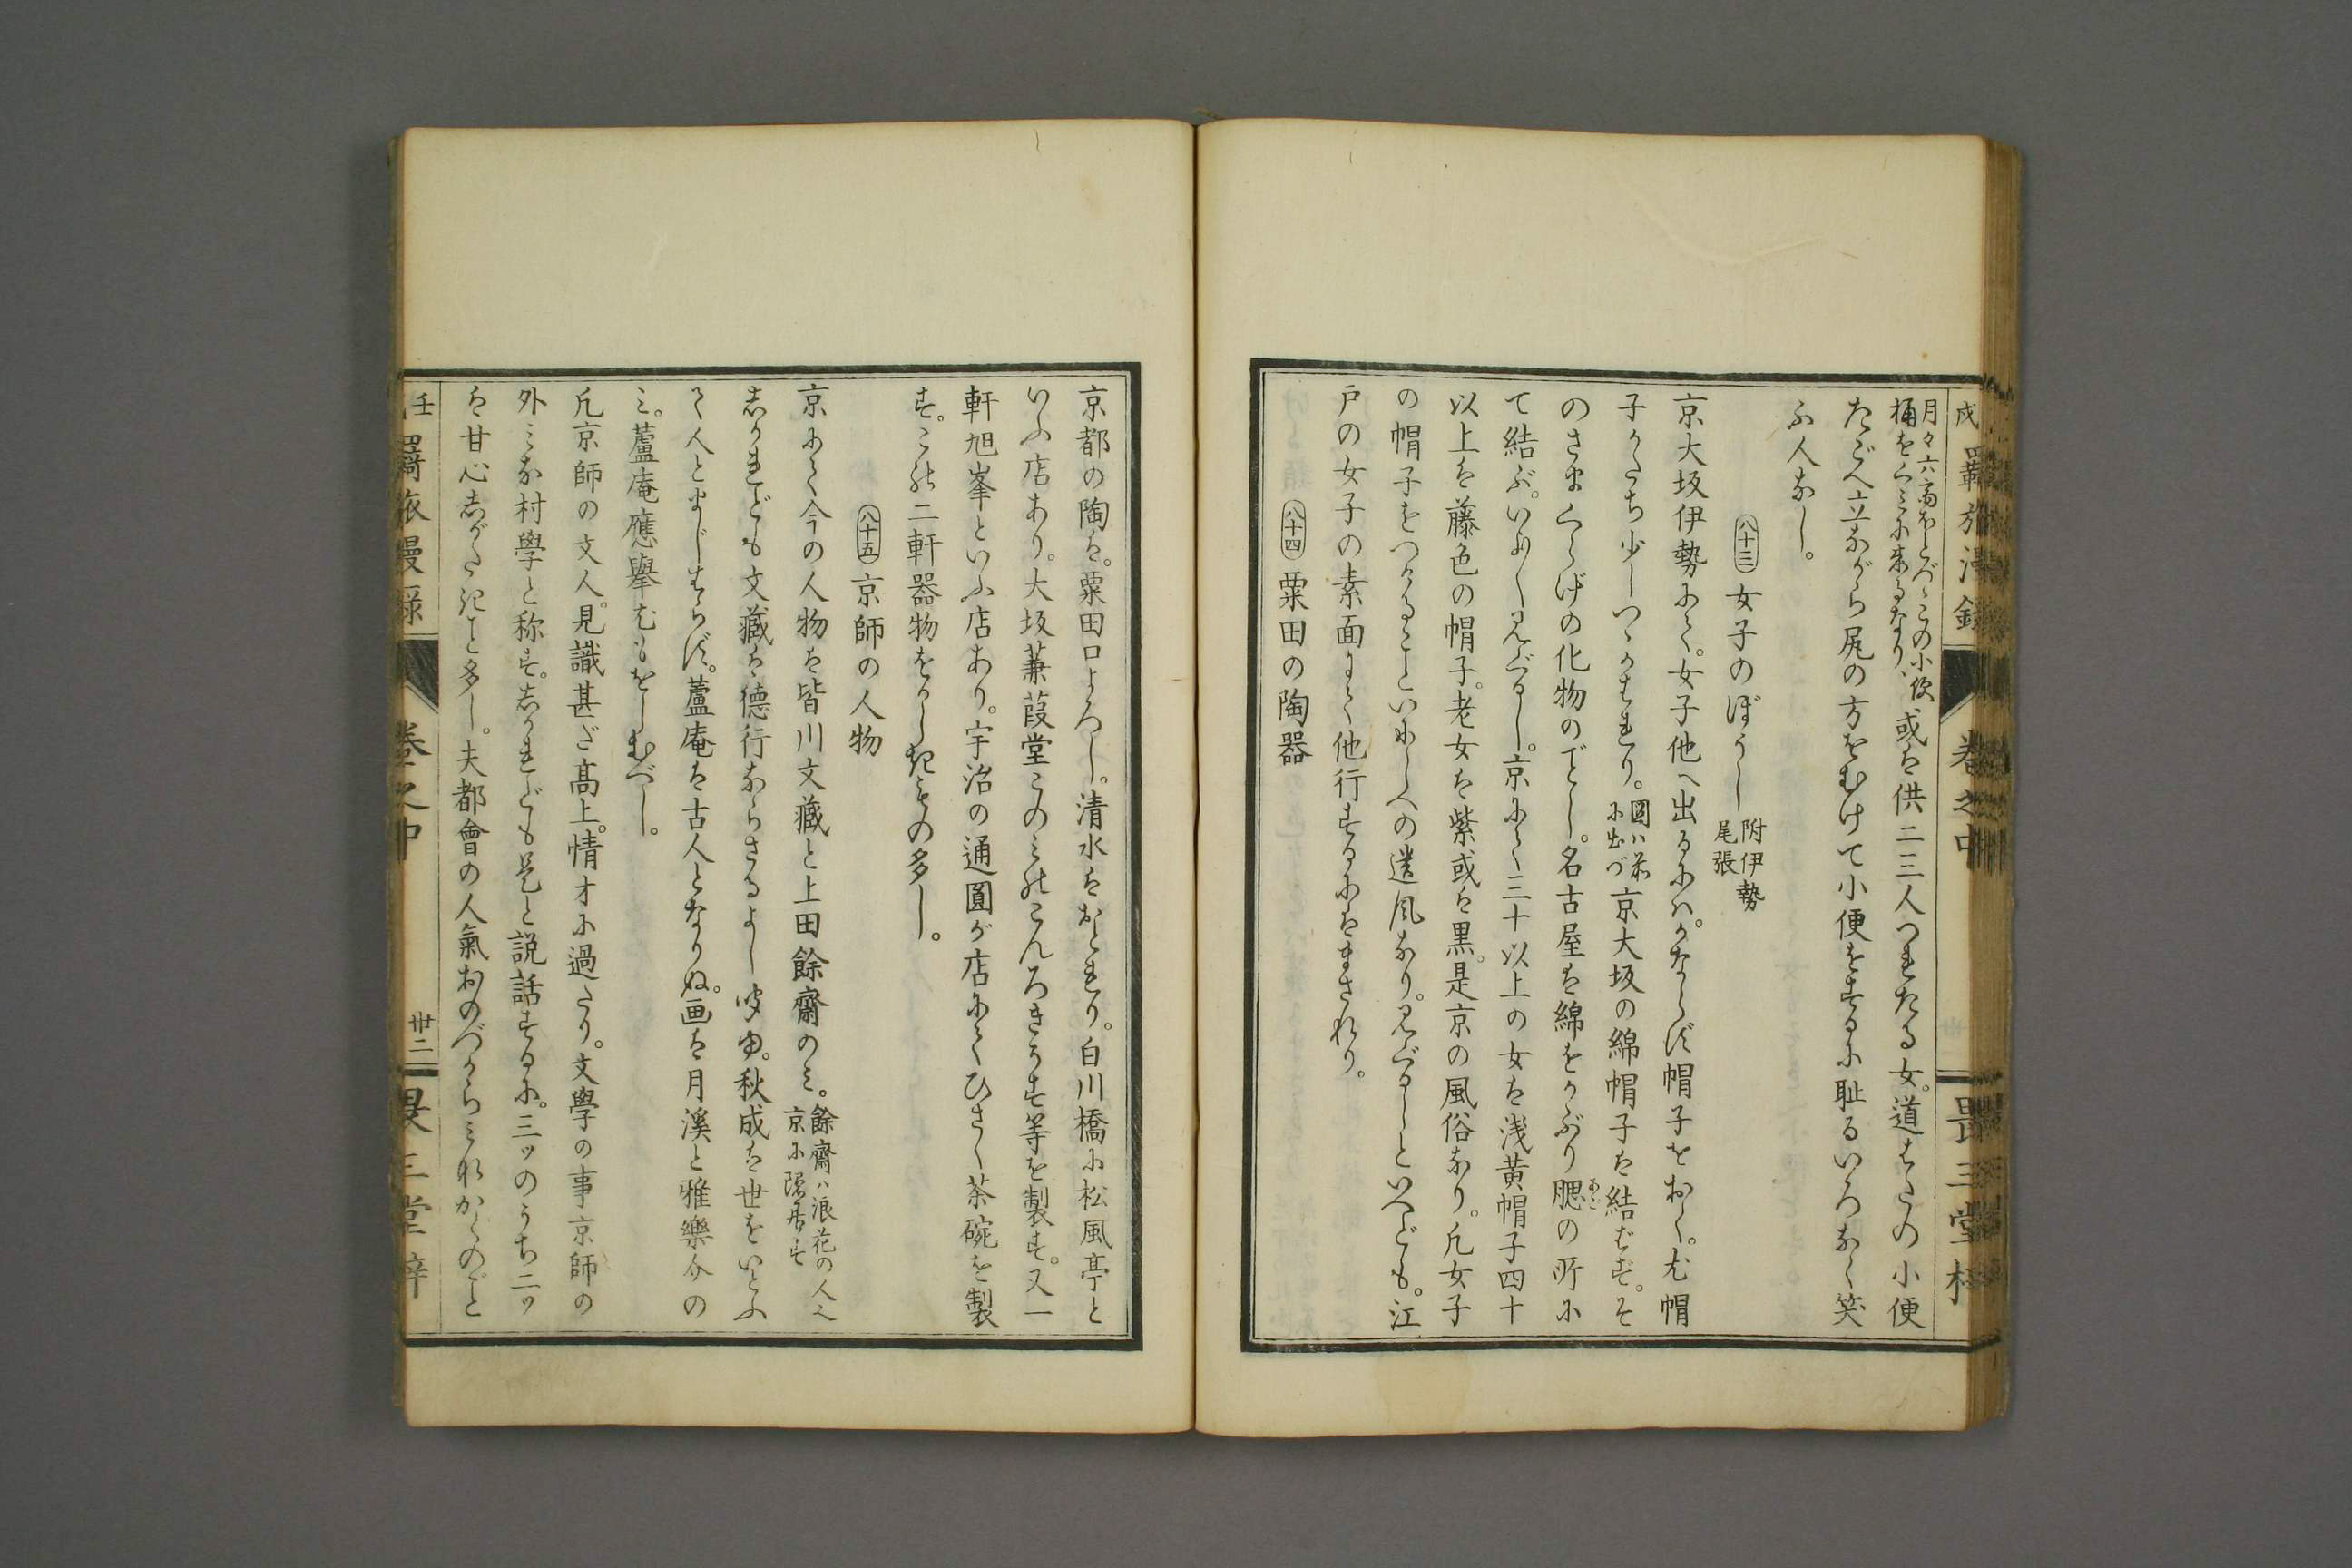 月々六斎ほどづゝこの小便
桶をくみに来るなり、或は供二三人つれたる女。道はたの小便
たごへ立ながら尻の方をむけて小便をするに耻るいろなく笑
ふ人なし。
八十三 女子のぼうし 附伊勢尾張
京大坂伊勢にて。女子他へ出るにハ。かならず帽子をおく。尤帽
子かたち少しつゝかはれり。圖ハ末に出づ京大坂の綿帽子は結ばず。そ
のさまくらげの化物のごとし。名古屋は綿をかぶり腮の所に
て結ぶ。いづれ見ぐるし。京にて三十以上の女は浅黄帽子四十
以上は藤色の帽子。老女は紫或は黒。是京の風俗なり。凡女子
の帽子をつけることいにしへの遺風なり。見ぐるしといへども。江
戸の女子の素面にて他行するにはまされり。
八十四 粟田の陶器
京都の陶は。粟田口よろし。清水はおとれり。白川橋に松風亭と
いふ店あり。大坂蒹葭堂このみのこんろきうす等を製す。又一
軒旭峯といふ店あり。宇治の通圓が店にてひさく茶碗を製
す。この二軒器物をかしきもの多し。
八十五 京師の人物
京にて今の人物は皆川文藏と上田餘齋のみ。餘齋ハ浪花の人也京に隠居す
しかれども文藏は徳行ならざるよし聞ゆ。秋成は世をいとふ
て人とまじはらず。蘆庵は古人となりぬ。画は月溪と雅樂介の
ミ。蘆庵應擧尤もをしむべし。
凡京師の文人。見識甚ざ高上。情才に過たり。文學の事京師の
外ミな村學と称す。しかれども是と説話するに。三ツのうち二ツ
は甘心しがたきこと多し。夫都會の人氣おのづからミなかくのごと
羇旅漫録 巻之中 卅二 畏三堂梓